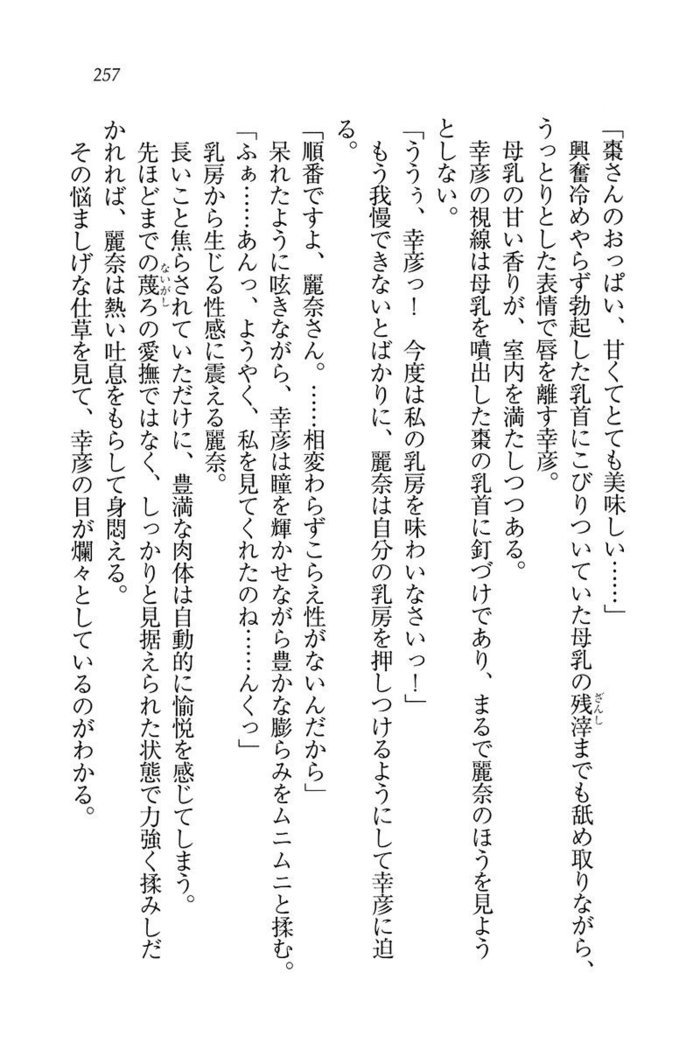 257
「棗さんのおっぱい、甘くてとても美味しい……」
興奮冷めやらず勃起した乳首にこびりついていた母乳の残滓までも舐め取りながら、
うっとりとした表情で唇を離す幸彦。
母乳の甘い香りが、室内を満たしつつある。
幸彦の視線は母乳を噴出した棗の乳首に釘づけであり、まるで麗奈のほうを見よう
としない。
「ううぅ、幸彦っ！　今度は私の乳房を味わいなさいっ！」
もう我慢できないとばかりに、麗奈は自分の乳房を押しつけるようにして幸彦に迫
る。
「順番ですよ、麗奈さん。……相変わらずこらえ性がないんだから」
呆れたように呟きながら、幸彦は瞳を輝かせながら豊かな膨らみをムニムニと揉む。
「ふぁ……あんっ、ようやく、私を見てくれたのね……んくっ」
乳房から生じる性感に震える麗奈。
長いこと焦らされていただけに、豊満な肉体は自動的に愉悦を感じてしまう。
先ほどまでの蔑ろの愛撫ではなく、しっかりと見据えられた状態で力強く揉みしだ
かれれば、麗奈は熱い吐息をもらして身悶える。
その悩ましげな仕草を見て、幸彦の目が爛々としているのがわかる。
ざんし
ないがし